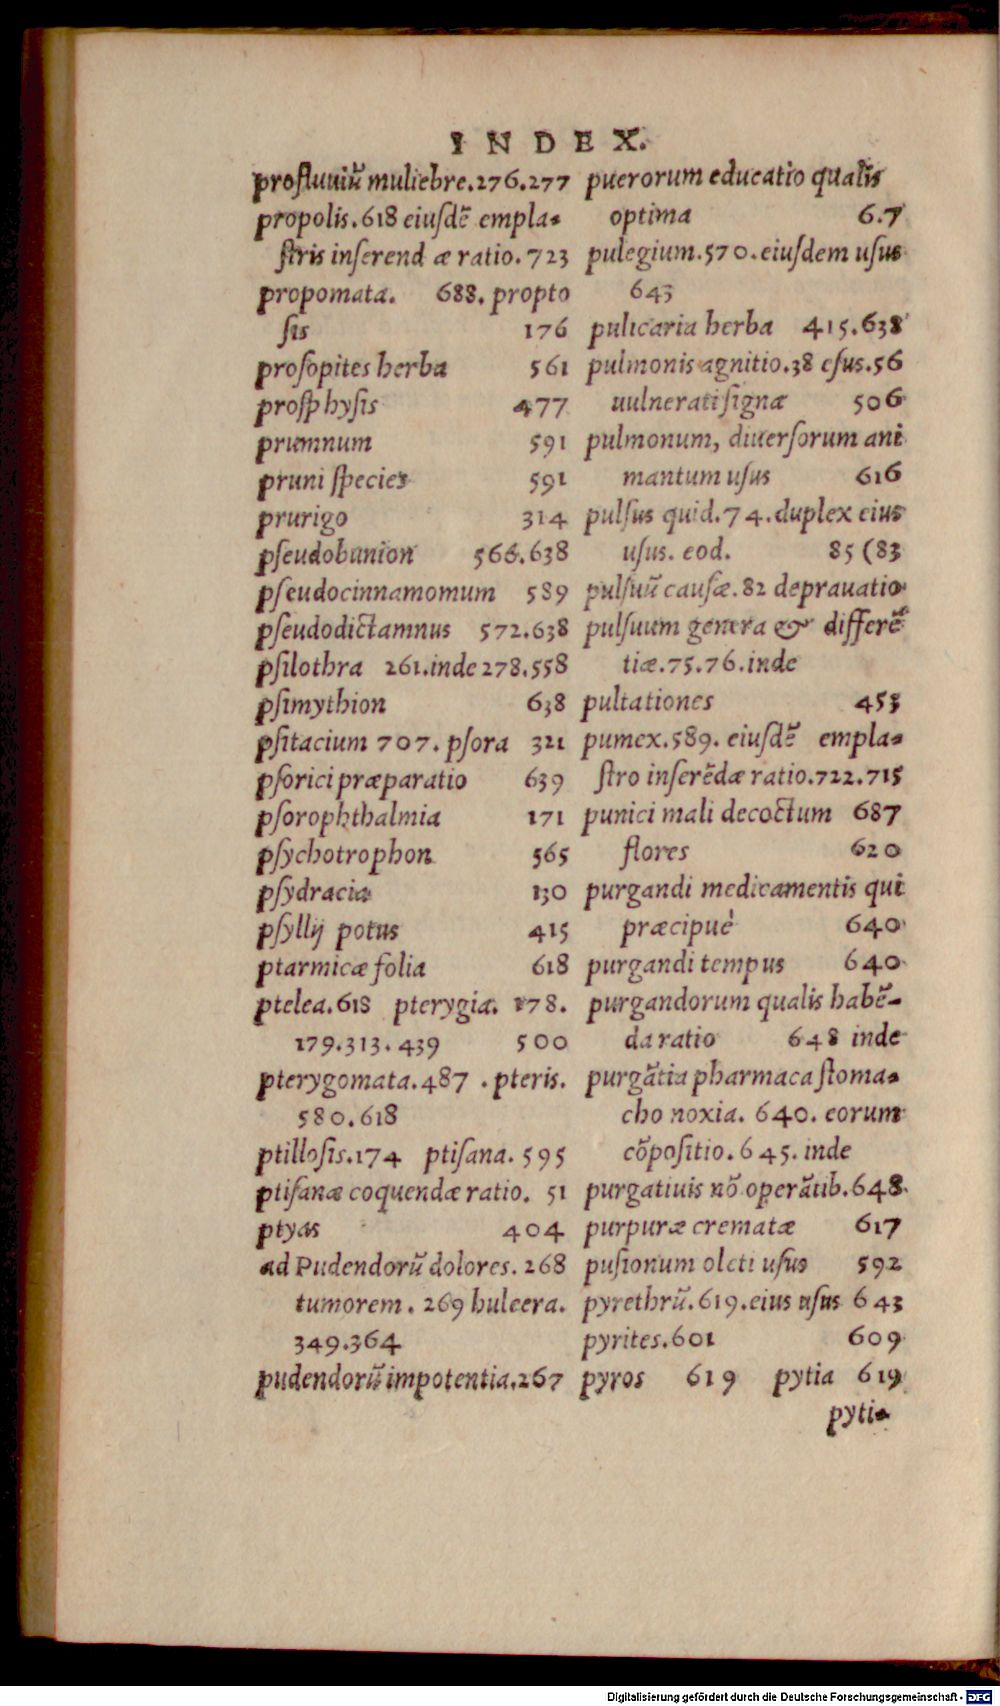 INDEX.
profluuiū muliebre.276.277
propolis.618 eiuſdē empla-
ſtris inſerend æ ratio.723
propomata. 688. propto
ſis 176
proſopites herba 561
proſphyſis 477
prumnum 591
pruni ſpecies 591
prurigo 314
pſeudobunion 566.638
pſeudocinnamomum 589
pſeudodictamnus 572.638
pſilothra 261.inde 278.558
pſimythion 638
pſitacium 707. pſora 321
pſorici præparatio 639
pſorophthalmia 171
pſychotrophon 565
pſydracia 130
pſyllij potus 415
ptarmicæ folia 618
ptelea.618 pterygia. 178.
179.313.439 500
pterygomata.487 .pteris.
580.618
ptilloſis.174 ptiſana.595
ptiſanæ coquendæ ratio. 51
ptyas 404
ad Pudendorū dolores.268
tumorem. 269 hulcera.
349.364
pudendorū impotentia.267
puerorum educatio qualis
optima 6.7
pulegium.570.eiuſdem uſus
643
pulicaria herba 415.638
pulmonis agnitio.38 eſus.56
uulnerati ſignæ 506
pulmonum, diuerſorum ani
mantum uſus 616
pulſus quid.74.duplex eius
uſus. eod. 85 (83
pulſuū cauſæ.82 deprauatio
pulſuum genera & differē
tiæ.75.76.inde
pultationes 453
pumex.589. eiuſdē empla-
ſtro inſerēdæ ratio.722.715
punici mali decoctum 687
flores 620
purgandi medicamentis qui
præcipuè 640
purgandi tempus 640
purgandorum qualis habē-
da ratio 648 inde
purgātia pharmaca ſtoma-
cho noxia. 640. eorum
cōpoſitio.645.inde
purgatiuis nō operātib.648.
purpuræ crematæ 617
puſionum oleti uſus 592
pyrethrū.619.eius uſus 643
pyrites.601 609
pyros 619 pytia 619
pytia
Digitalisierung gefördert durch die Deutsche Forschungsgemeinschaft - DFG